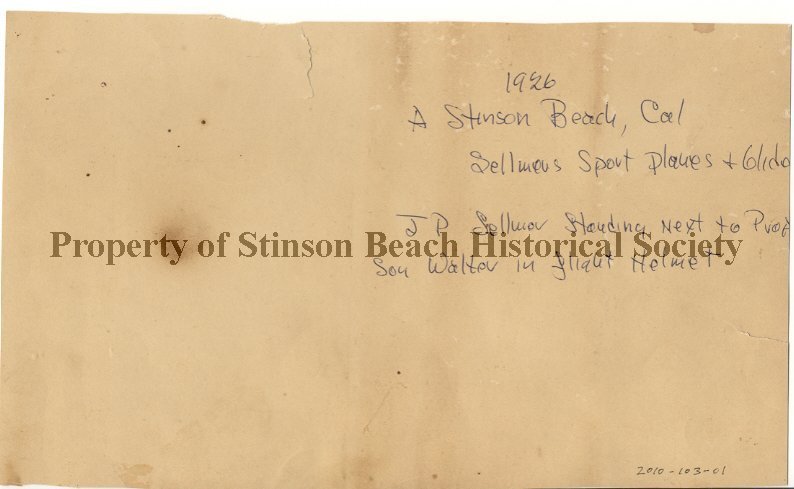 1926
A Stinson Beach, Cal
Sellmers Sport planes + Glide
J P Sellmer Standing Next to Prop
Property of Stinson Beach Historical Society
Son Walter in flight Helmet
2010-103-01